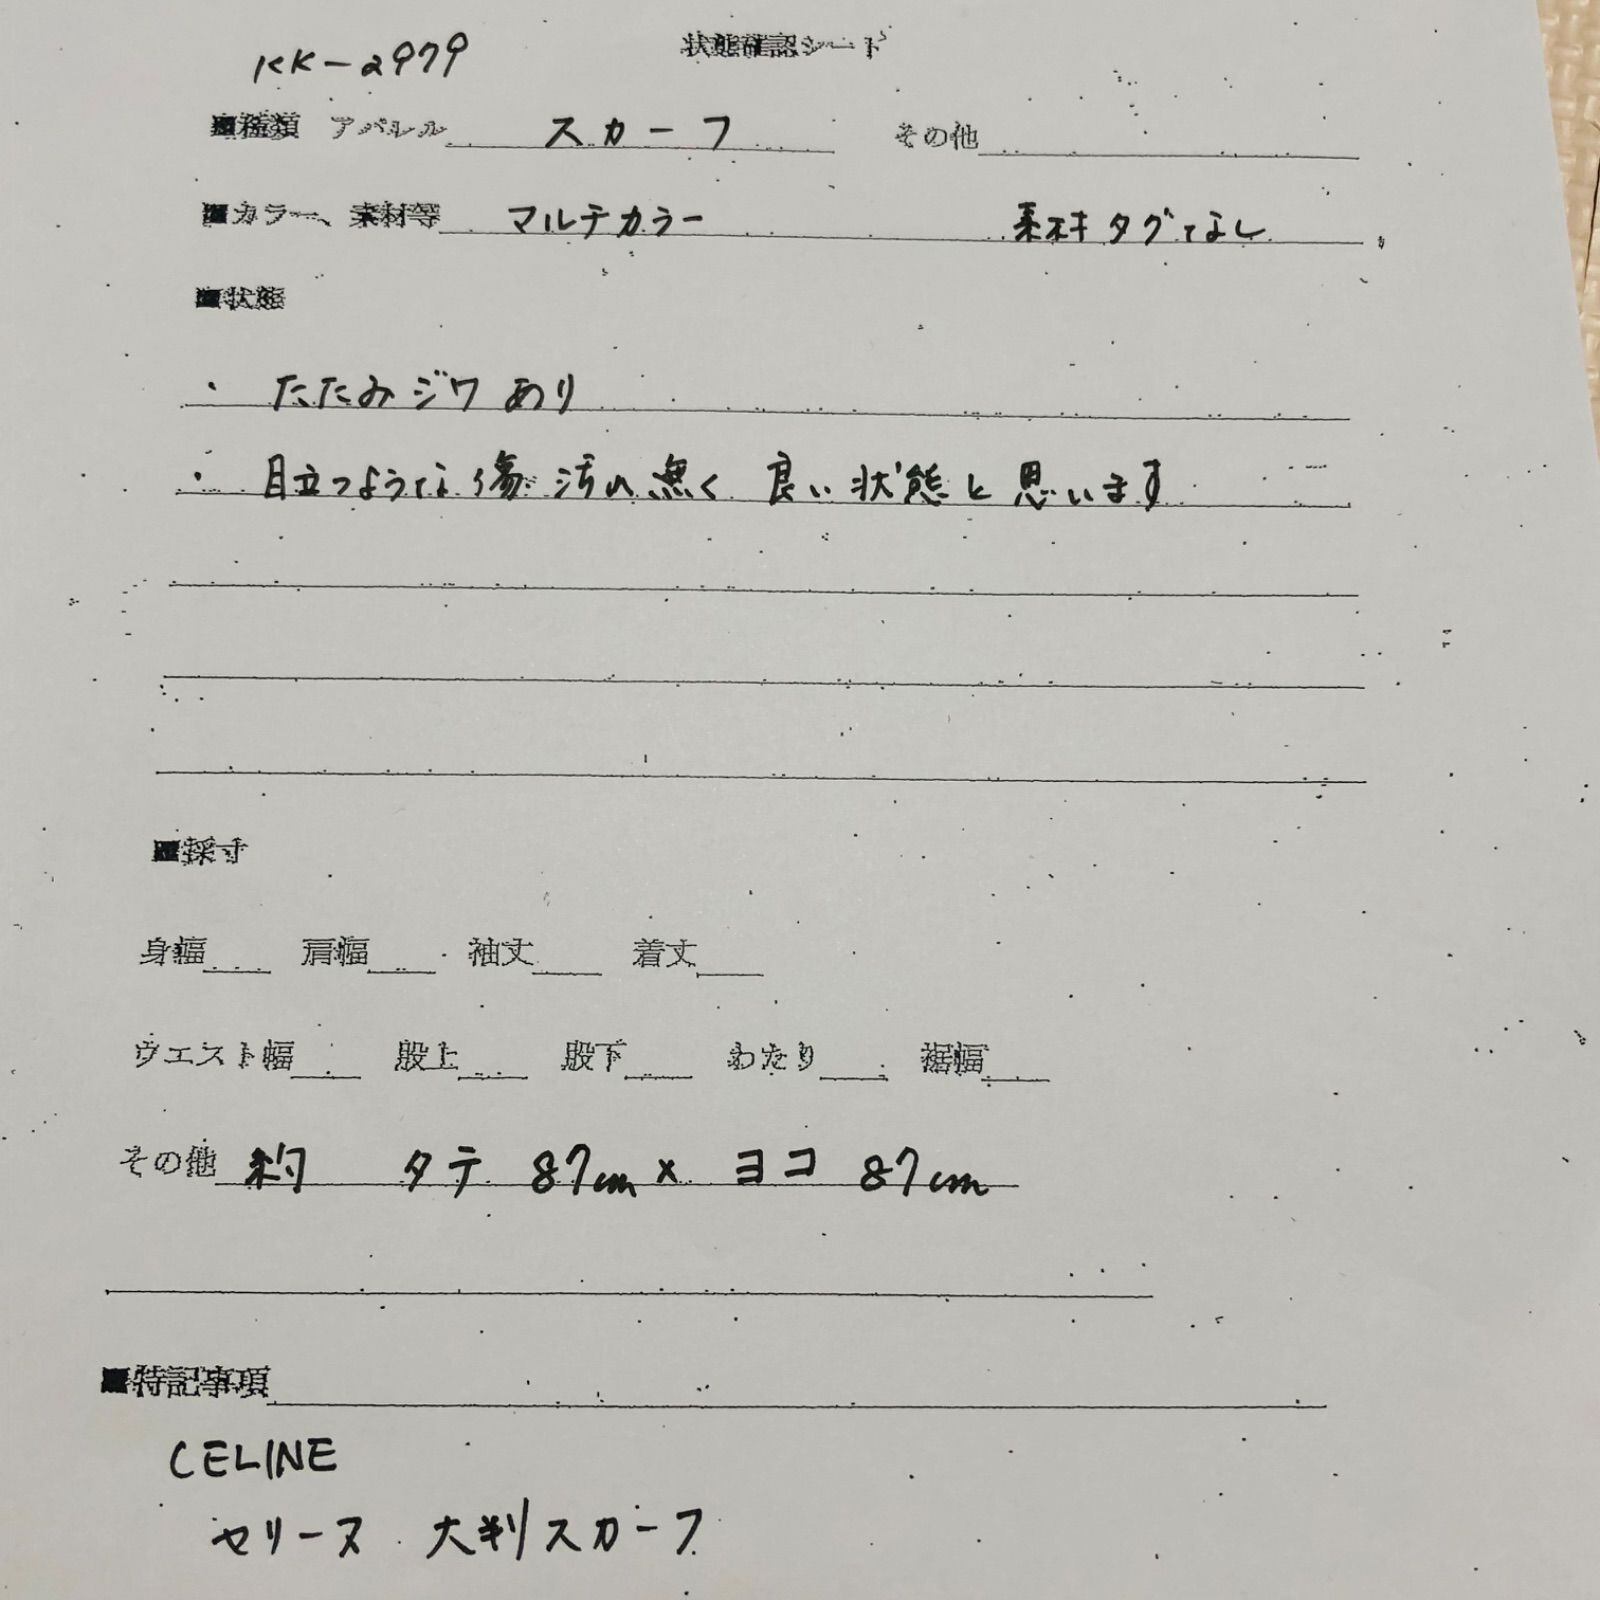 状態確認シート
KK-2979
■種類 アパレル スカーフ その他
■カラー、素材等 マルチカラー 素材タグなし
■状態
・ たたみジワあり
・ 目立つような傷 汚れ無く 良い状態と思います
■採寸
身幅 肩幅 袖丈 着丈
ウエスト幅 股上 股下 わたり 裾幅
その他 約 タテ 87cm × ヨコ 87cm
■特記事項
CELINE
セリーヌ 大判スカーフ